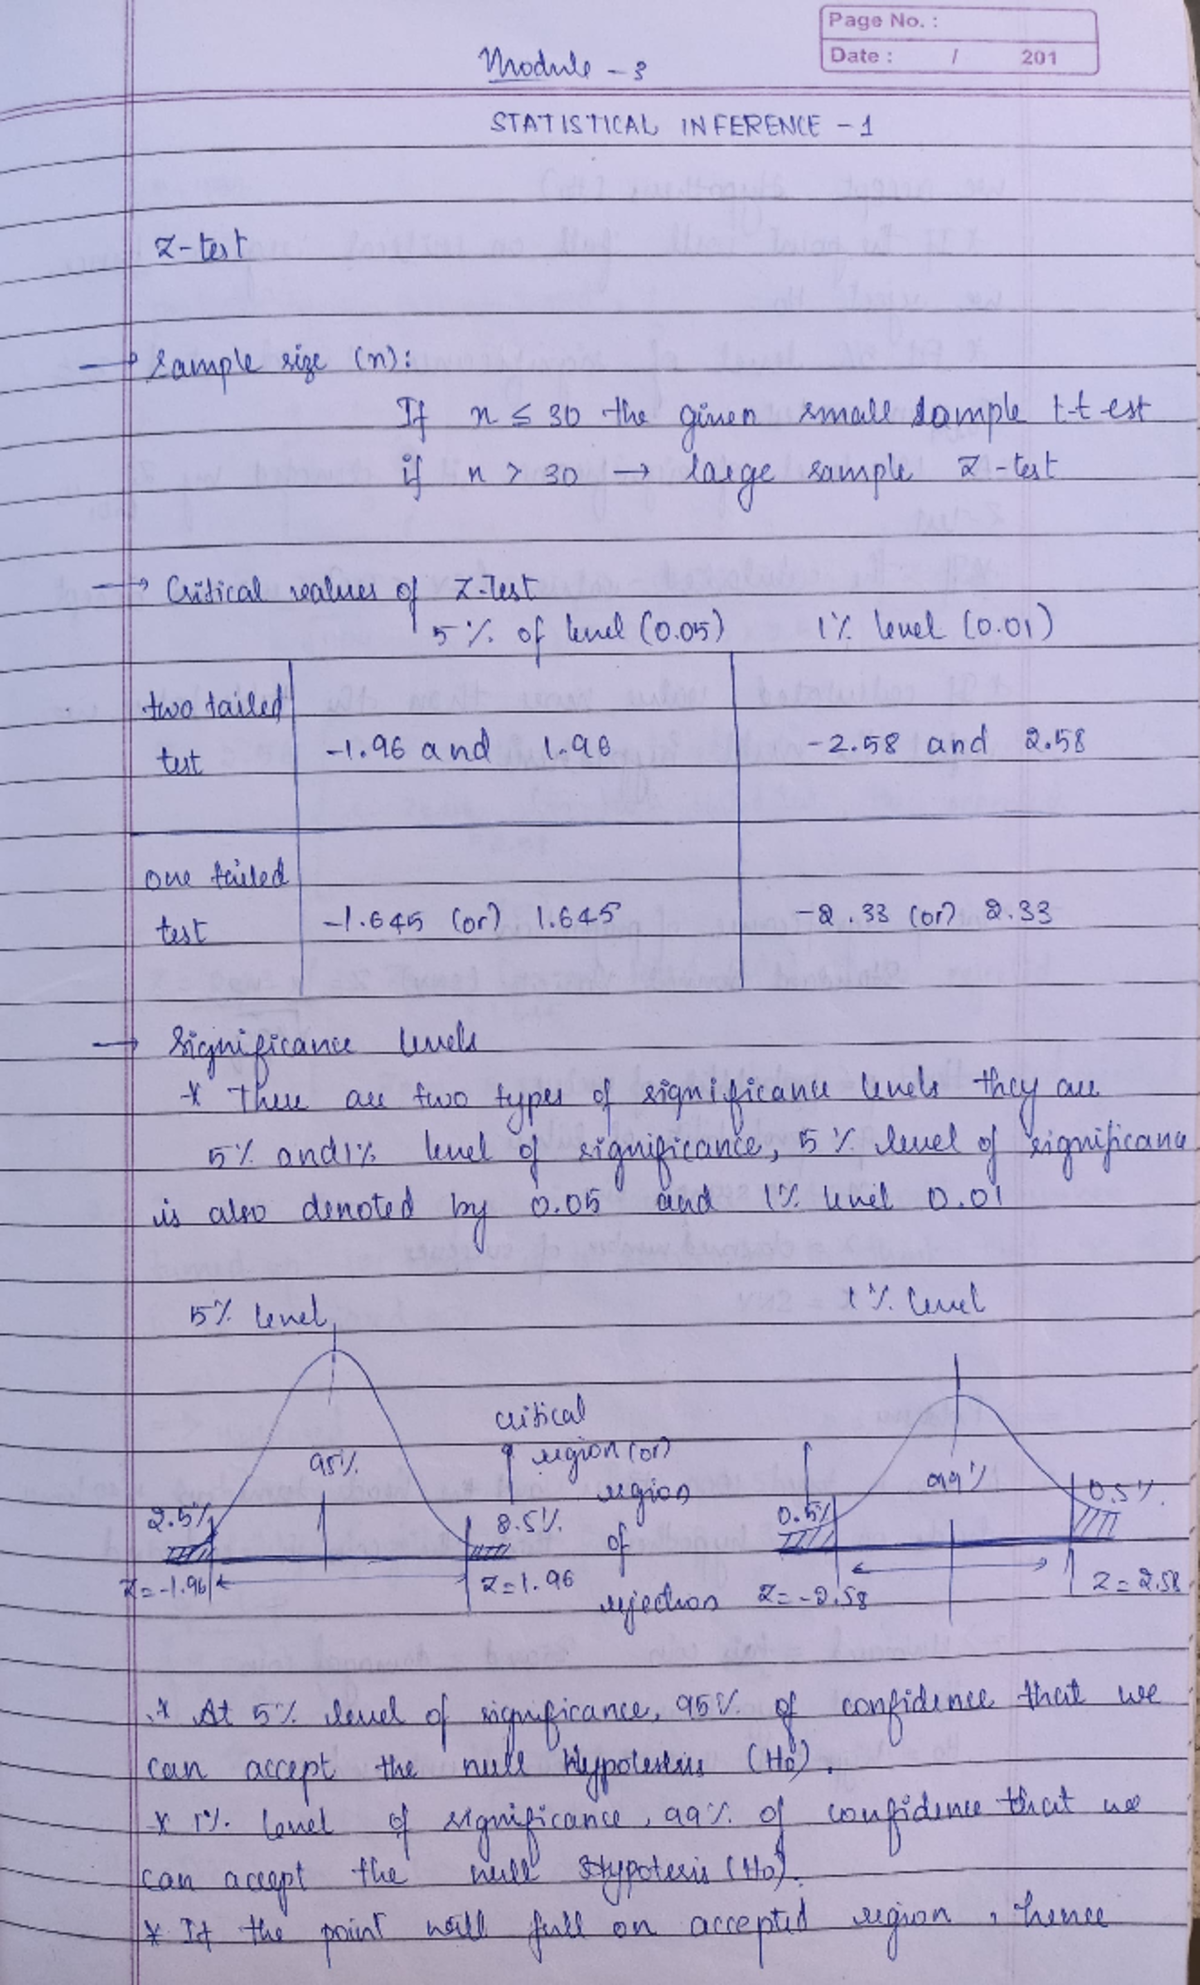 Page No. :
Date : / 201
Module - 3
STATISTICAL INFERENCE - 1
Z-test
→ Sample size (n):
If n ≤ 30 the given small sample t-t est
if n > 30 → large sample Z-test
→ Critical values of Z-Test
5% of level (0.05) 1% level (0.01)
two tailed
test -1.96 and 1.96 -2.58 and 2.58
one tailed
test -1.645 (or) 1.645 -2.33 (or) 2.33
→ Significance levels
* There are two types of significance levels they are
5% and 1% level of significance, 5% level of significance
is also denoted by 0.05 and 1% level 0.01
5% level 1% level
critical
region (or)
95% 99%
region
2.5% 2.5% 0.5% 0.5%
of
Z=-1.96 Z=1.96 rejection Z=-2.58 Z=2.58
* At 5% level of significance, 95% of confidence that we
can accept the null Hypotesis (H0).
* 1% level of significance, 99% of confidence that we
can accept the null Hypotesis (H0).
* If the point will full on accepted region, hence